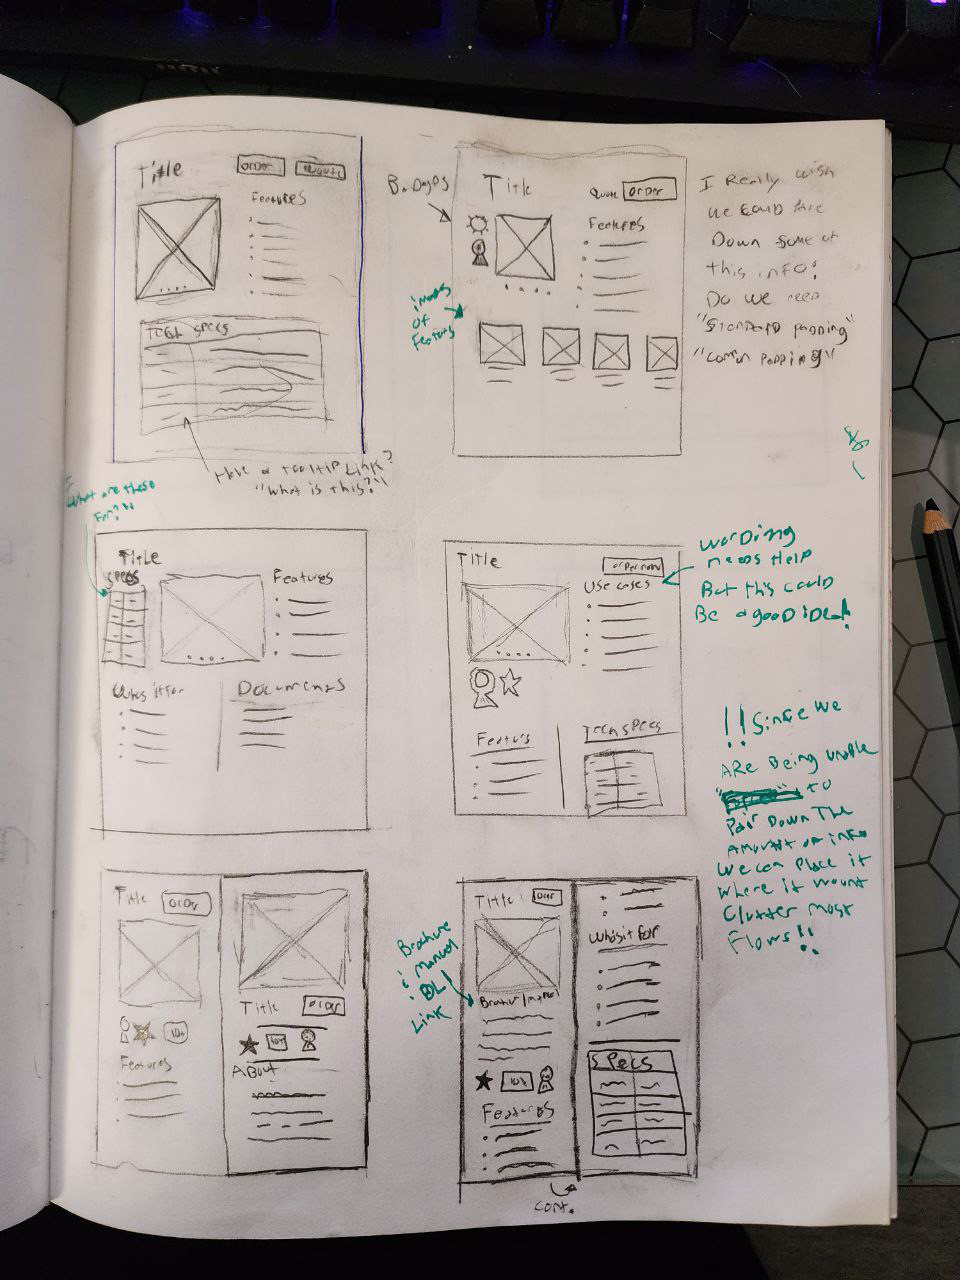 Title
order
Features
Tech specs
Have a tooltip link?
"What is this?"
Badages
Title
Quote
order
Features
images
of
Features
I Really wish
we could Pare
Down some of
this info!
Do we need
"Standard padding"
What are these
For?"
Title
Specs
Features
Documents
Title
order now
Use cases
Features
Tech specs
wording
needs Help
But this could
Be a good idea!
!! Since we
are Being unable
to
Pair Down The
amount of info
we can place it
where it
Clutter most
Flows!!
Title
order
Features
Title
order
About
Brochure
manual
DL
Link
Title
10+
Features
cont.
Specs